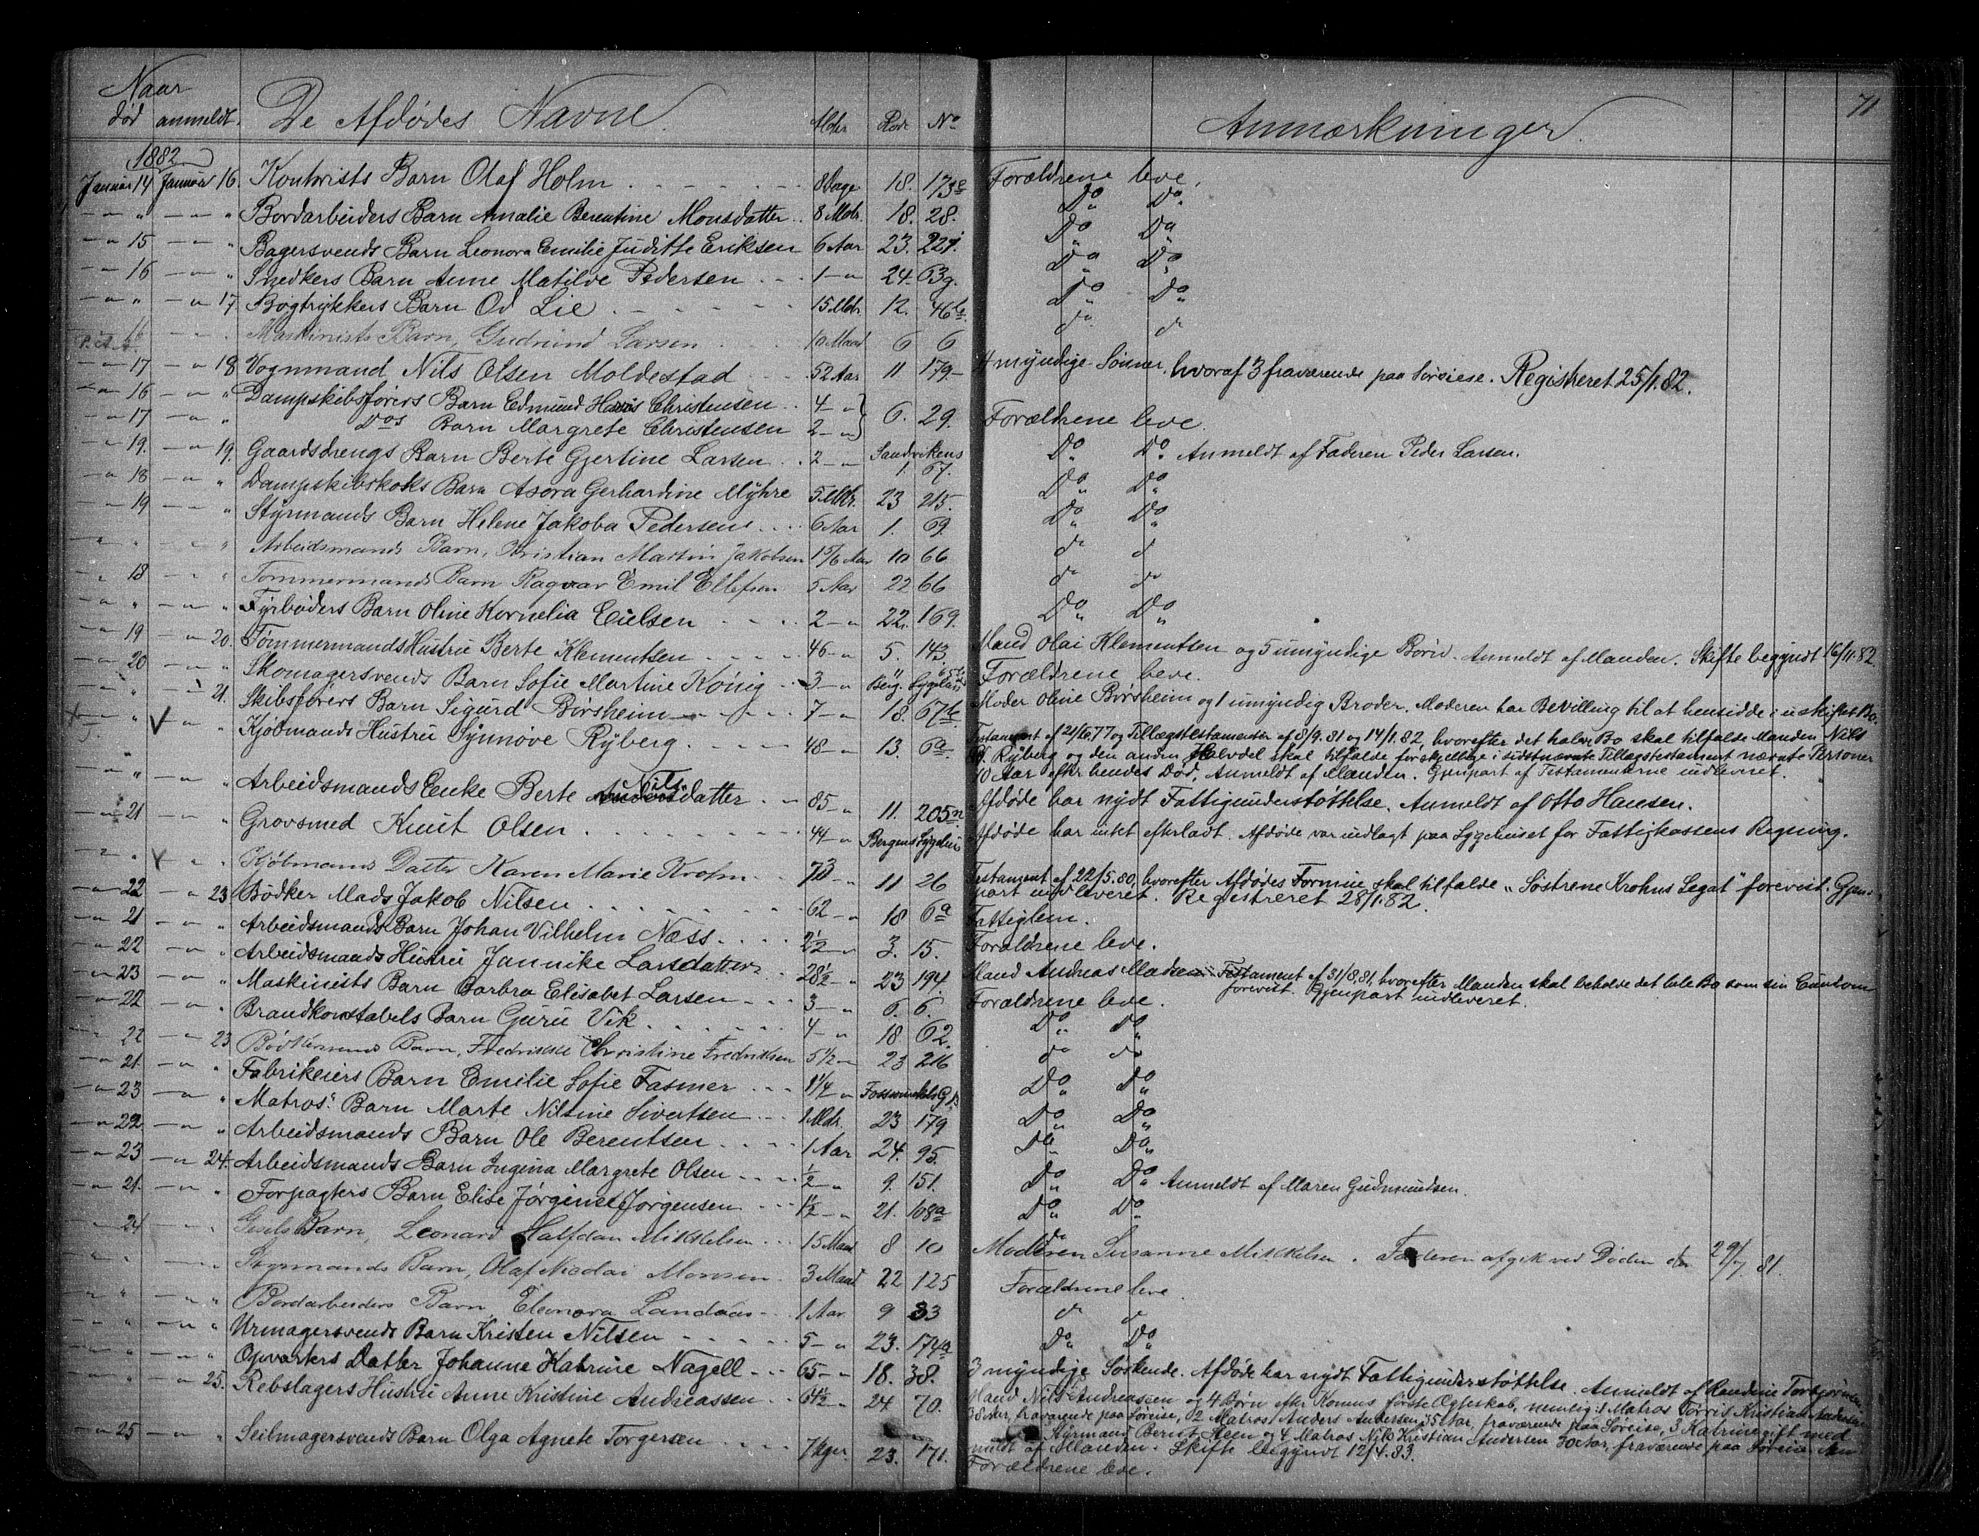 Naar
død anmeldt. De Afdødes Navne. Alder Rode No Anmærkninger. 71
1882
Januar 14 Januar 16. Kontorists Barn Olaf Holm 8 Dage 18. 173 Forældrene leve.
" " Bordarbeiders Barn Amalie Berentine Monsdatter 8 Mdr. 18. 28. Do Do
15 " Bagersvends Barn Leonora Emilie Juditte Eriksen 6 Aar 23. 221. Do Do
16 " Snedkers Barn Anne Matilde Pedersen 1 " 24. 63g. Do Do
" 17 Bogtrykkers Barn Od Lie 15 Mdr. 12. 46 Do Do
16 Maskinists Barn, Gudrund Larsen 10 Maad 6 6 do do
17 18 Vognmand Nils Olsen Moldestad 52 Aar 11 179 4 myndige Sønner, hvoraf 3 fraværende paa Sørøiese. Registreret 25/1.82.
16 " Dampskibsførers Barn Edmund Hans Christensen 4 "
17 " Dos Barn Margrete Christensen 2 " 6. 29. Forældrene leve.
19. 19. Gaardsdrengs Barn Berte Gjertine Larsen 2 " Sandvikens 1. 67. Do Do Anmeldt af Faderen Peder Larsen.
18 " Dampskibskoks Barn Asora Gerhardine Myhre 5 Mdr. 23 215. Do Do
19 " Styrmands Barn Helene Jakoba Pedersen 6 Aar 1. 69. Do Do
" " Arbeidsmands Barn, Christian Martin Jakobsen 1 5/6 Aar 10 66 do do
18 " Tømmermands Barn Ragvar Emil Ellefsen 5 Aar 22 66 do do
" " Fyrbøders Barn Oline Kornelia Eielsen 2 " 22. 169. Do Do
19 20. Tømmermands Hustru Berte Klementsen 46 " 5. 143 Mand Olai Klementsen og 5 umyndige Børn. Anmeldt af Manden. Skifte begyndt 16/11.82
20 " Skomagersvends Barn Sofie Martine König 3 " Berg. Sygehus Forældrene leve.
" 21. Skibsførers Barn Sigurd Borsheim 7 " 18. 67b. Moder Oline Børsheim og 1 umyndig Broder. Moderen har Bevilling til at hensidde i uskiftet Bo.
" " Kjøbmands Hustru Synnove Ryberg 48 " 13. 6a Testament af 21/6.77 og Tillægstestamenter af 8/9.81 og 14/1.82, hvorefter det halve Bo skal tilfalde Manden Nils
Ryberg og den anden Halvdel skal tilfalde forskjellige i sidstnævnte Tillægstestament nævnte Personer
10 Aar efter hendes Død. Anmeldt af Manden. Gjenpart af Testamenterne indleveret.
" " Arbeidsmands Enke Berte Nilsdatter 85 " 11. 205 Afdøde har nydt Fattigunderstøttelse. Anmeldt af Otto Hansen.
21 " Grovsmed Knut Olsen 44 " Bergens Sygehus Afdøde har intet efterladt. Afdøde var indlagt paa Sygehuset for Fattigkassens Regning.
" " Kjøbmands Datter Karen Marie Krohn 73 " 11 26 Testament af 22/5.80, hvorefter Afdødes Formue skal tilfalde "Søstrene Krohns Legat" forevist. Gjen-
part indleveret. Registreret 28/1.82.
22 23 Bødker Mads Jakob Nilsen 62 " 18 6a Fattiglem.
21 " Arbeidsmands Barn Johan Vilhelm Næss 2 1/2 " 3. 15. Forældrene leve.
22 " Arbeidsmands Hustru Jannike Larsdatter 28 1/2 " 23 194 Mand Andreas Madsen. Testament af 31/8.81, hvorefter Manden skal beholde det hele Bo som sin Eiendom
forevist. Gjenpart indleveret.
23 " Maskinists Barn Barbra Elisabet Larsen 3 " 6. 6. Forældrene leve.
22 " Brandkonstabels Barn Guru Vik 4 " 18 62. Do Do
22 23 Bødkersvends Barn, Fredrikke Christine Fredriksen 5 1/2 " 23 216 do do
21. " Fabrikeiers Barn Emilie Sofie Fasmer 1 1/4 " Do Do
23 " Matros' Barn Marte Nilsine Sivertsen 1 Mdr. 23 179 Do Do
22 " Arbeidsmands Barn Ole Berentsen 1 Aar 24. 95. Do Do
23 24. Arbeidsmands Barn Ingina Margrete Olsen 1/2 " 9. 151. Do Do Anmeldt af Maren Gudmundsen.
21. " Forpagters Barn Elise Jørgine Jørgensen 1 1/2 " 21. 168a Do Do
24 " Barn, Leonard Halfdan Mikkelsen 15 Maad 8 10 Moderen Susanne Mikkelsen. Faderen afgik ved Døden den 29/7 81.
" " Styrmands Barn, Olaf Nicolai Monsen 3 Maad 22 125 Forældrene leve.
" " Bordarbeiders Barn, Eleonora Landaas 1 Aar 9 33 do do
" " Urmagersvends Barn Kristen Nilsen 5 " 23. 174a Do Do
" " Opvarters Datter Johanne Katrine Nagell 65 " 18. 38. 3 myndige Søskende. Afdøde har nydt Fattigunderstøttelse. Anmeldt af
" 25. Rebslagers Hustru Anne Kristine Andreassen 64 1/2 " 24 70. Mand Nils Andreassen og 4 Børn efter Konens første Ægteskab, nemlig: 1 Matros Kristian
Peder, fraværende paa Søreise, 2 Matros Anders Andersen 35 Aar, fraværende paa Søreise, 3 Katrine gift med
Styrmand Bernt Heen og 4 Matros Nils Kristian Andersen 30 Aar, fraværende paa Søreise. An-
meldt af Manden. Skifte begyndt 12/4.83.
25 " Seilmagersvends Barn Olga Agnete Torgersen 7 Uger. 23. 171. Forældrene leve.